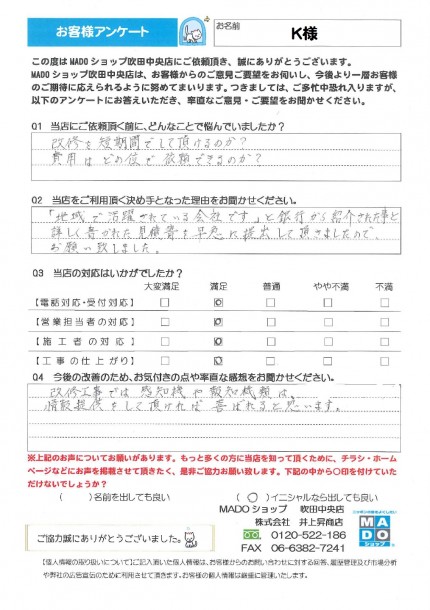 お客様アンケート
お名前
K様
この度はMADOショップ吹田中央店にご依頼頂き、誠にありがとうございます。
MADOショップ吹田中央店は、お客様からのご意見ご要望をお伺いし、今後より一層お客様
のご期待に応えられるように努めてまいります。つきましては、ご多忙中恐れ入りますが、
以下のアンケートにお答えいただき、率直なご意見・ご要望をお聞かせください。
Q1 当店にご依頼頂く前に、どんなことで悩んでいましたか？
改修を短期間でして頂けるのか？
費用はどの位で依頼できるのか？
Q2 当店をご利用頂く決め手となった理由をお聞かせください。
「地域で活躍されている会社です」と銀行から紹介された事と
詳しく書かれた見積書を早急に提出して頂きましたので、
お願い致しました。
Q3 当店の対応はいかがでしたか？
大変満足 満足 普通 やや不満 不満
【電話対応・受付対応】
【営業担当者の対応】
【施工者の対応】
【工事の仕上がり】
Q4 今後の改善のため、お気付きの点や率直な感想をお聞かせください。
改修工事では感知機や報知機類は、
情報提供をして頂ければ喜ばれると思います。
※上記のお声についてお願いがあります。もっと多くの方に当店を知って頂くために、チラシ・ホーム
ページなどにお声を掲載させて頂きたく、是非ご協力お願い致します。下記の中から〇印を付けていた
だけないでしょうか？
（ ）名前を出しても良い （〇）イニシャルなら出しても良い
MADOショップ 吹田中央店
株式会社 井上昇商店
0120-522-186
FAX 06-6382-7241
MADO
ショップ
ご協力誠にありがとうございました。
【個人情報の取り扱いについて】ご記入頂いた個人情報は、お客様からのお問い合わせに対する回答、履歴管理及び市場分析
や弊社の広告宣伝のために利用させて頂きます。お客様の個人情報は厳重に管理いたします。